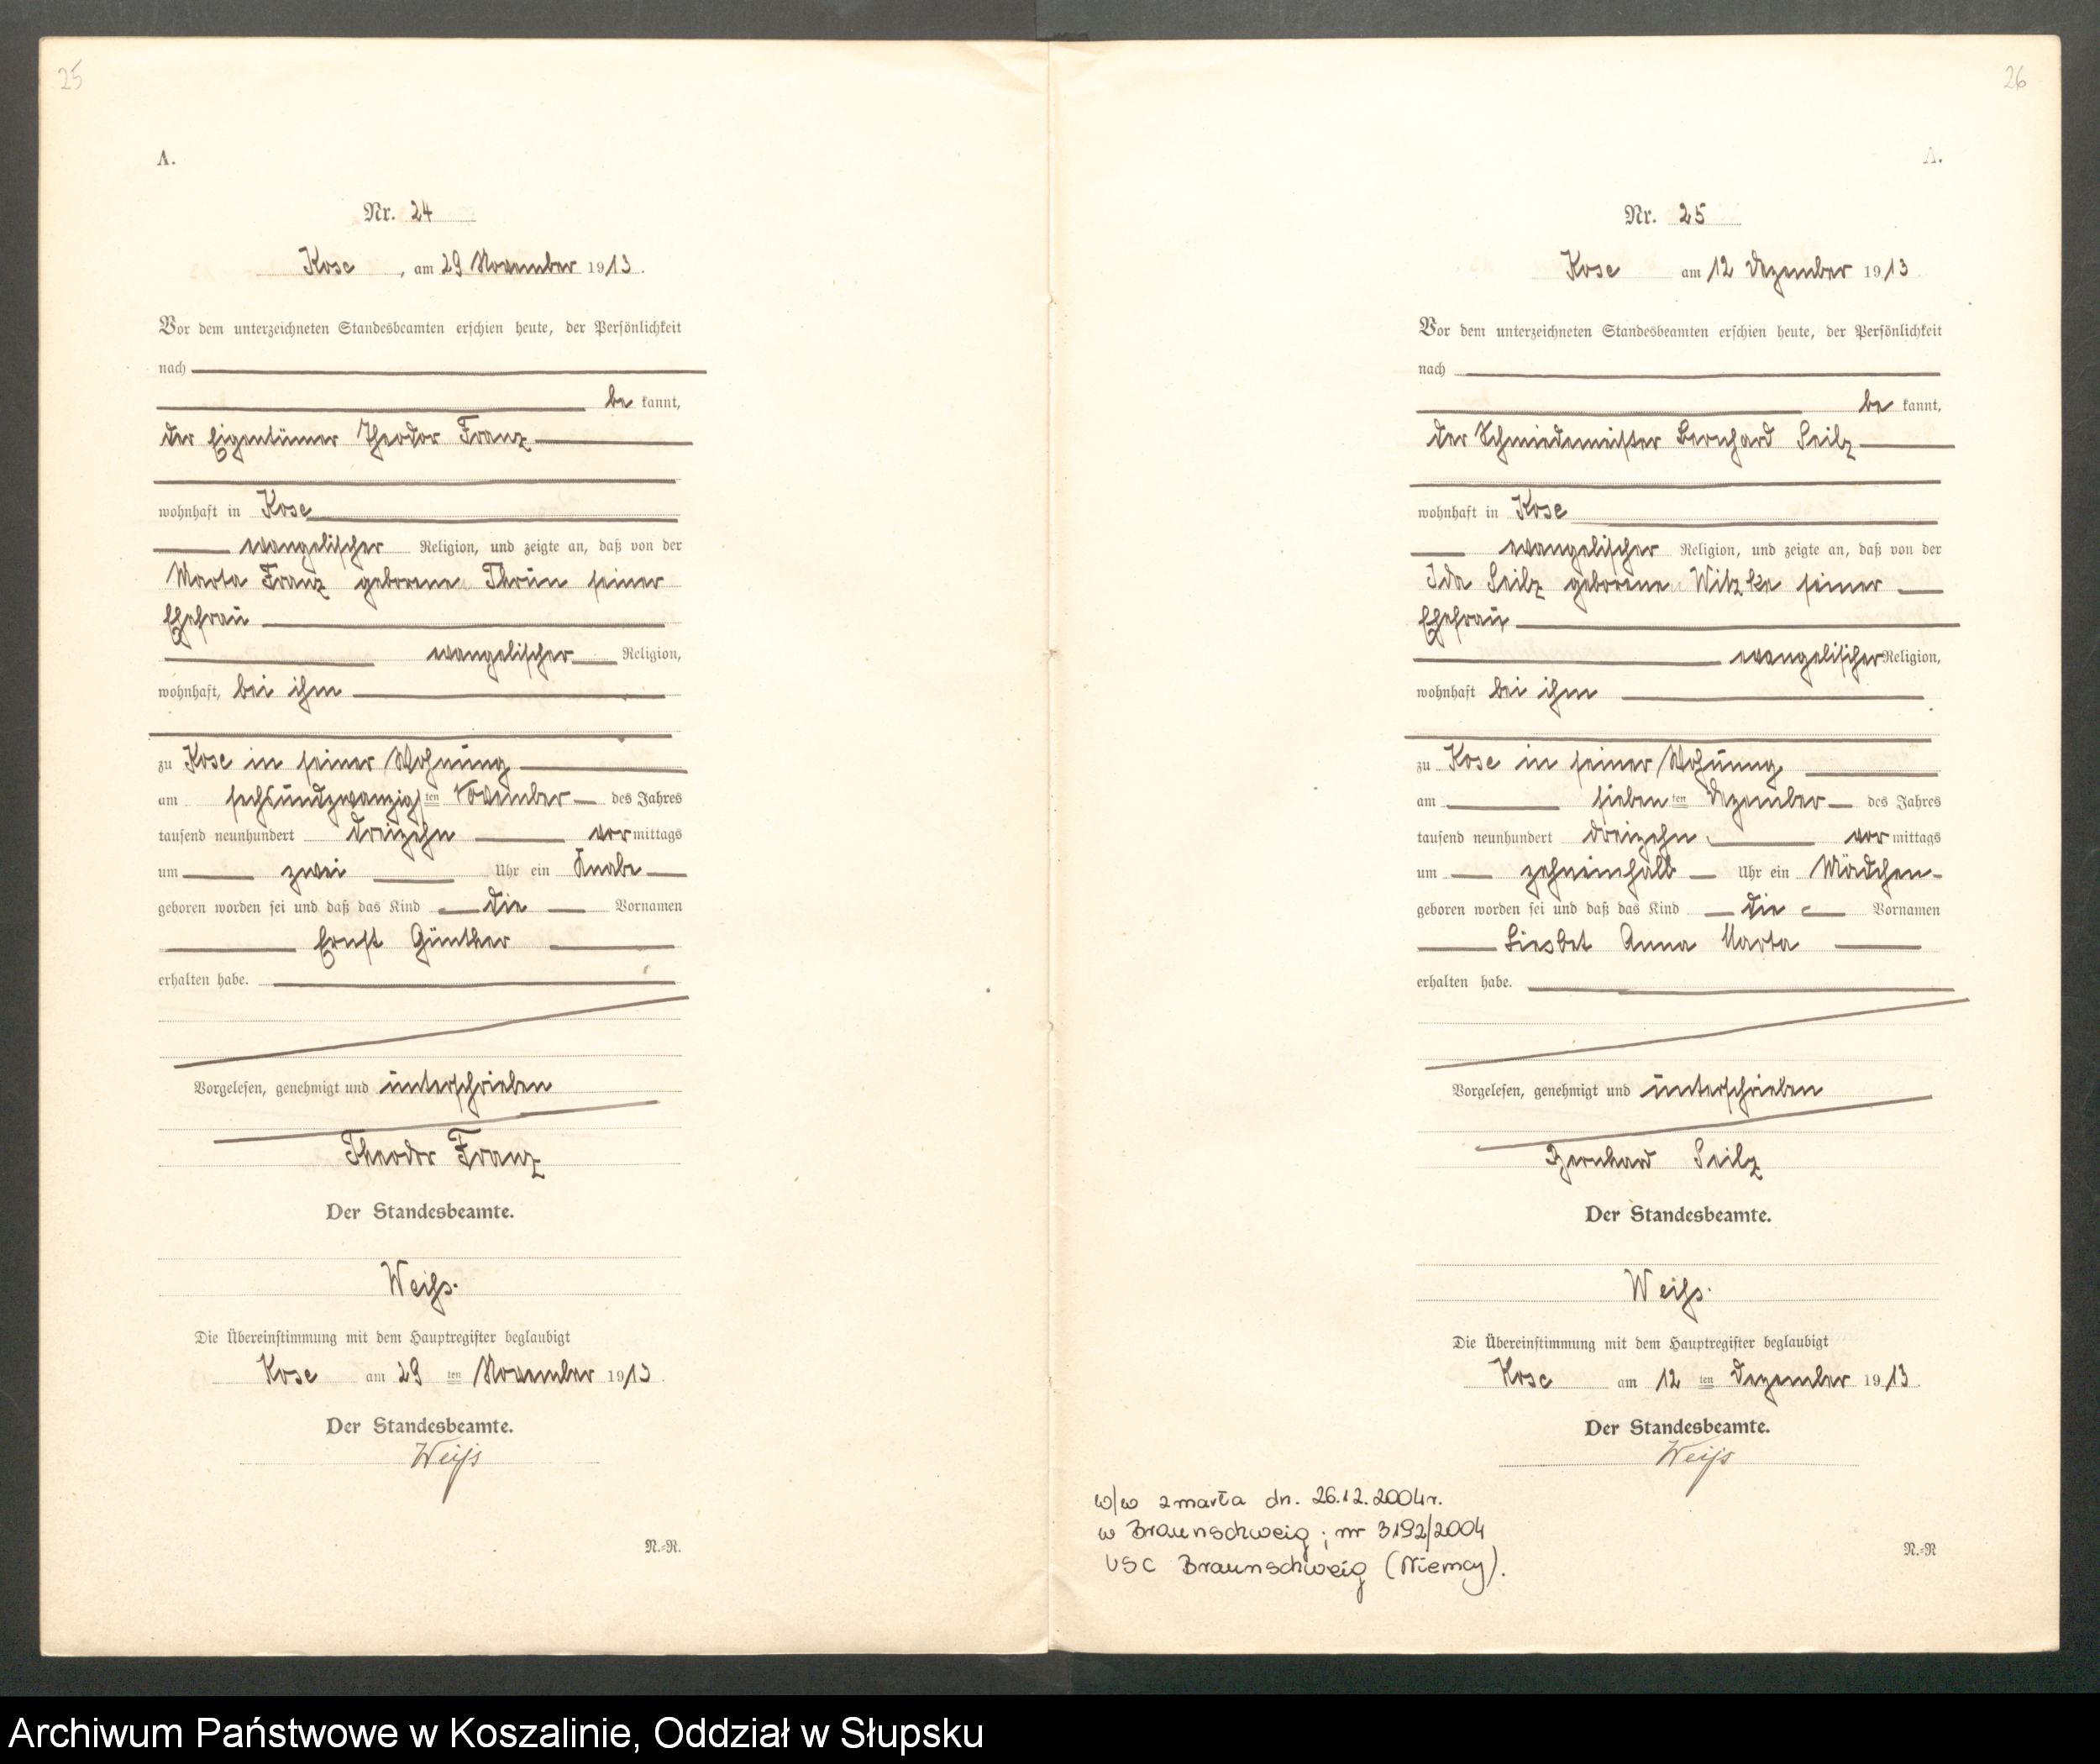 25
A.
Nr. 24
Kose, am 29 November 1913.
Vor dem unterzeichneten Standesbeamten erschien heute, der Persönlichkeit
nach
be kannt,
der Eigentümer Theodor Franz
wohnhaft in Kose
evangelischer Religion, und zeigte an, daß von der
Marta Franz geborene Thrun seiner
Ehefrau
evangelischer Religion,
wohnhaft, bei ihm
zu Kose in seiner Wohnung
am sechsundzwanzigsten November des Jahres
tausend neunhundert dreizehn vor mittags
um zwei Uhr ein Knabe
geboren worden sei und daß das Kind die Vornamen
Ernst Günther
erhalten habe.
Vorgelesen, genehmigt und unterschrieben
Theodor Franz
Der Standesbeamte.
Weiß.
Die Übereinstimmung mit dem Hauptregister beglaubigt
Kose am 29 ten November 1913.
Der Standesbeamte.
Weiß
N.=N.
26
A.
Nr. 25
Kose am 12 Dezember 1913.
Vor dem unterzeichneten Standesbeamten erschien heute, der Persönlichkeit
nach
be kannt,
der Schmiedemeister Bernhard Seilz
wohnhaft in Kose
evangelischer Religion, und zeigte an, daß von der
Ida Seilz geborene Witzke seiner
Ehefrau
evangelischer Religion,
wohnhaft bei ihm
zu Kose in seiner Wohnung
am sieben ten Dezember des Jahres
tausend neunhundert dreizehn vor mittags
um zehneinhalb Uhr ein Mädchen
geboren worden sei und daß das Kind die Vornamen
Liesbet Anna Marta
erhalten habe.
Vorgelesen, genehmigt und unterschrieben
Bernhard Seilz
Der Standesbeamte.
Weiß.
Die Übereinstimmung mit dem Hauptregister beglaubigt
Kose am 12 ten Dezember 1913.
Der Standesbeamte.
Weiß
w/w zmarła dn. 26.12.2004r.
w Braunschweig; nr 3192/2004
USC Braunschweig (Niemcy).
N.=N
Archiwum Państwowe w Koszalinie, Oddział w Słupsku